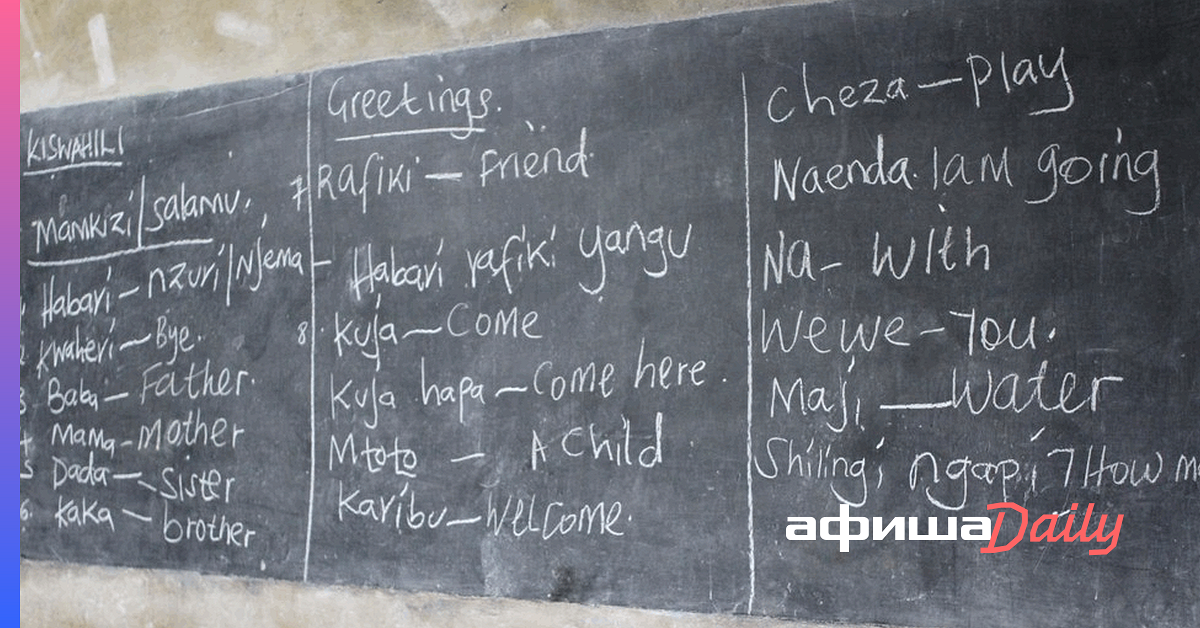 KISWAHILI
Mamkizi/salamu.
Habari - nzuri/Njema
Kwaheri - Bye.
3 Baba - Father.
4 Mama - Mother
5 Dada - Sister
6. Kaka - brother
Greetings.
7 Rafiki - Friend
Habari rafiki yangu
8. Kuja - Come
Kuja hapa - Come here.
Mtoto - A Child
Karibu - Welcome.
Cheza - Play
Naenda. I am going
Na - With
Wewe - You.
Maji - Water
Shilingi ngapi? How m
афиша Daily